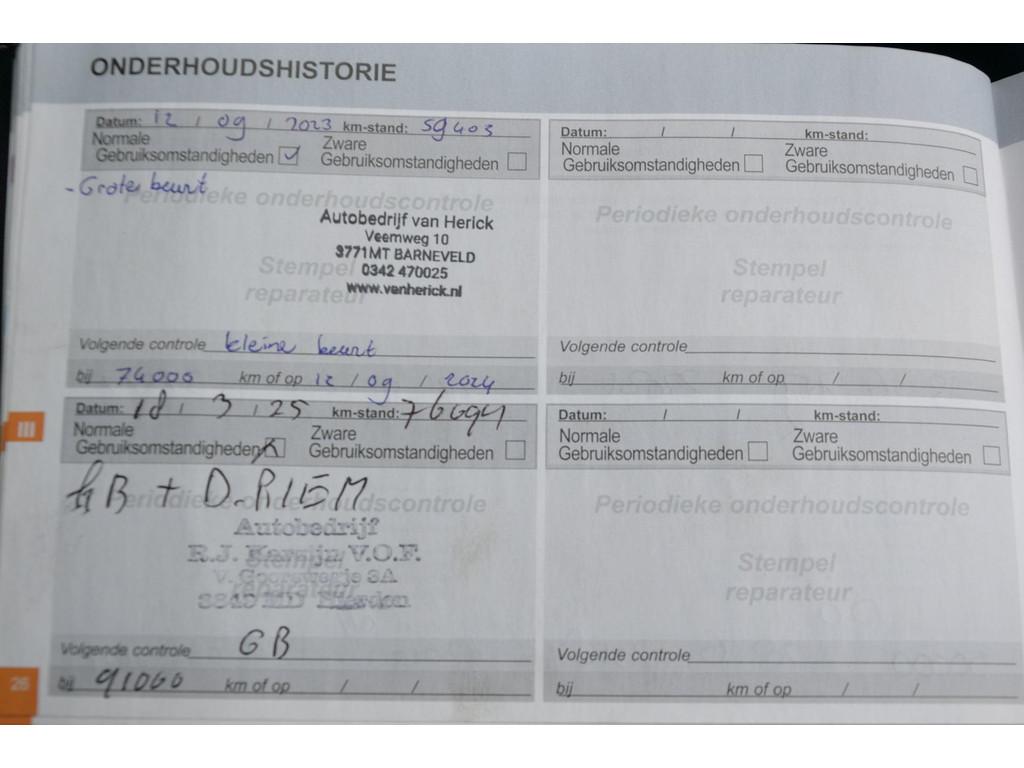 ONDERHOUDSHISTORIE
Datum: 12 / 09 / 2023 km-stand: 59403
Normale
Gebruiksomstandigheden
Zware
Gebruiksomstandigheden
- Grote beurt
Periodieke onderhoudscontrole
Autobedrijf van Herick
Veemweg 10
3771MT BARNEVELD
Stempel
0342 470025
reparateur
www.vanherick.nl
Volgende controle kleine beurt
bij 74000 km of op 12 / 09 / 2024
Datum: / / km-stand:
Normale
Gebruiksomstandigheden
Zware
Gebruiksomstandigheden
Periodieke onderhoudscontrole
Stempel
reparateur
Volgende controle
bij km of op / /
III
Datum: 18 / 3 / 25 km-stand:
Normale
Gebruiksomstandigheden
Zware
Gebruiksomstandigheden
B + D-RIEM
Periodieke onderhoudscontrole
Autobedrijf
R.J. V.O.F.
Stempel
V. 3A
reparateur
Volgende controle GB
bij 91000 km of op / /
Datum: / / km-stand:
Normale
Gebruiksomstandigheden
Zware
Gebruiksomstandigheden
Periodieke onderhoudscontrole
Stempel
reparateur
Volgende controle
bij km of op / /
26